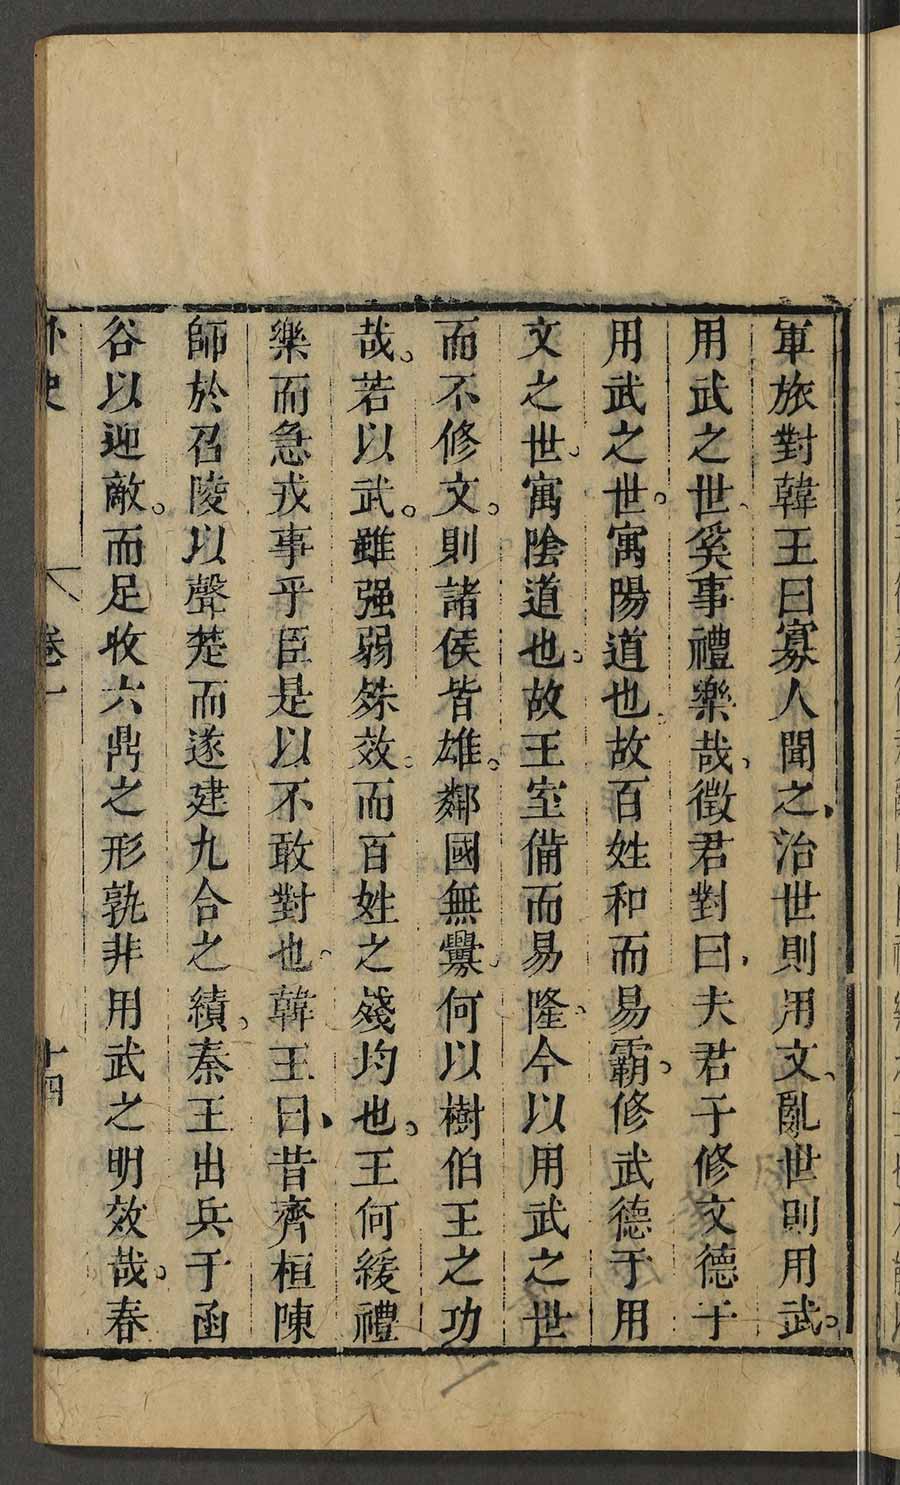 軍旅對韓王曰寡人聞之治世則用文亂世則用武
用武之世奚事禮樂哉徵君對曰夫君子修文德于
用武之世寓陽道也故百姓和而易霸修武德于用
文之世寓陰道也故王室備而易隆今以用武之世
而不修文則諸侯皆雄鄰國無釁何以樹伯王之功
哉若以武雖强弱殊效而百姓之殘均也王何緩禮
樂而急戎事乎臣是以不敢對也韓王曰昔齊桓陳
師於召陵以聲楚而遂建九合之績秦王出兵于函
谷以迎敵而足收六鼎之形孰非用武之明效哉春
外史 卷一 十四